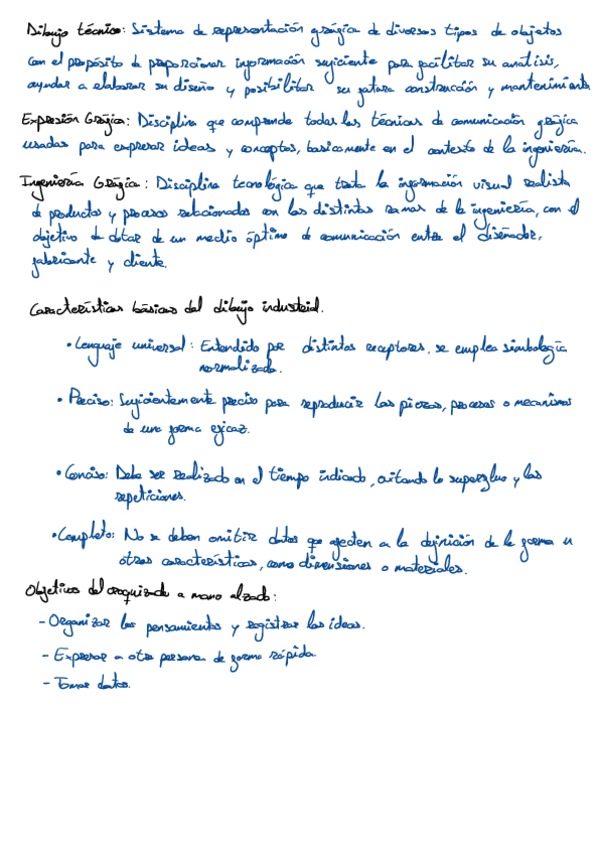 Dibujo técnico: Sistema de representación gráfica de diversos tipos de objetos
con el propósito de proporcionar información suficiente para facilitar su análisis,
ayudar a elaborar su diseño y posibilitar su futura construcción y mantenimiento
Expresión Gráfica: Disciplina que comprende todas las técnicas de comunicación gráfica
usadas para expresar ideas y conceptos, basicamente en el contexto de la ingeniería.
Ingeniería Gráfica: Disciplina tecnológica que trata la información visual realista
de productos y procesos relacionados con las distintas ramas de la ingeniería, con el
objetivo de dotar de un medio óptimo de comunicación entre el diseñador,
fabricante y cliente.
Características básicas del dibujo industrial.
• Lenguaje universal: Entendido por distintos receptores, se emplea simbología
normalizada.
• Preciso: Suficientemente preciso para reproducir las piezas, procesos o mecanismos
de una forma eficaz.
• Conciso: Debe ser realizado en el tiempo indicado, evitando lo superfluo y las
repeticiones.
• Completo: No se deben omitir datos que afecten a la definición de la forma u
otras características, como dimensiones o materiales.
Objetivos del croquizado a mano alzada:
- Organizar los pensamientos y registrar las ideas.
- Expresar a otra persona de forma rápida.
- Tomar datos.